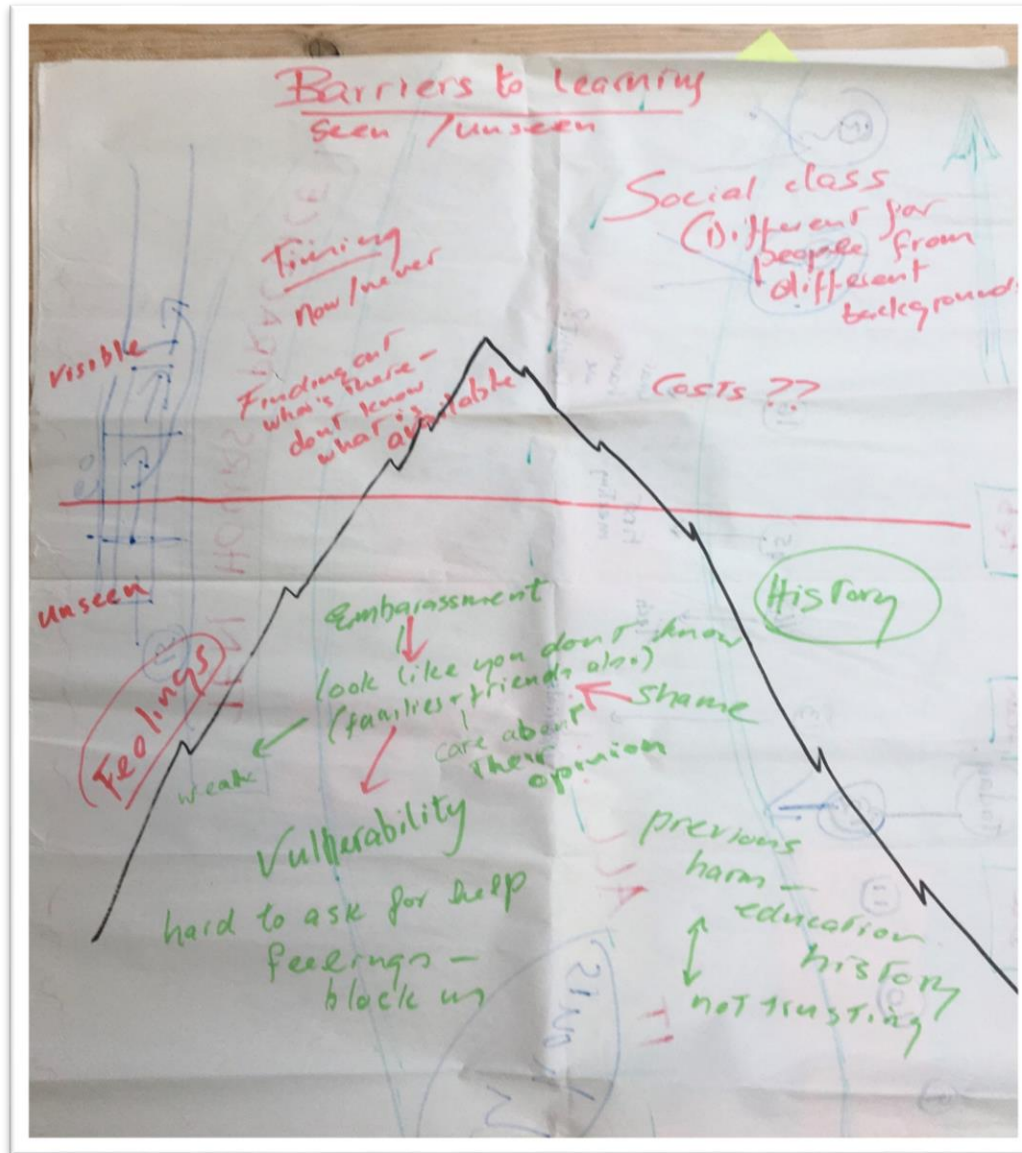 Barriers to learning
seen / unseen
Social class
(Different for
people from
different
backgrounds
Timing
now/never
visible
Finding out
what's there –
dont know
what is
available
Costs ??
unseen
Feelings
History
Embarassment
look like you dont know
(families + friends also)
shame
care about
their
opinion
weak
Vulnerability
hard to ask for help
feelings –
block us
previous
harm –
education
history
not trusting